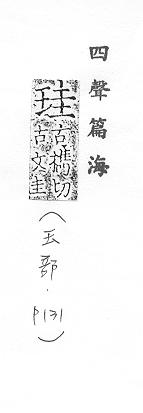 四聲篇海
珪古攜切古文圭
(玉部．P131)